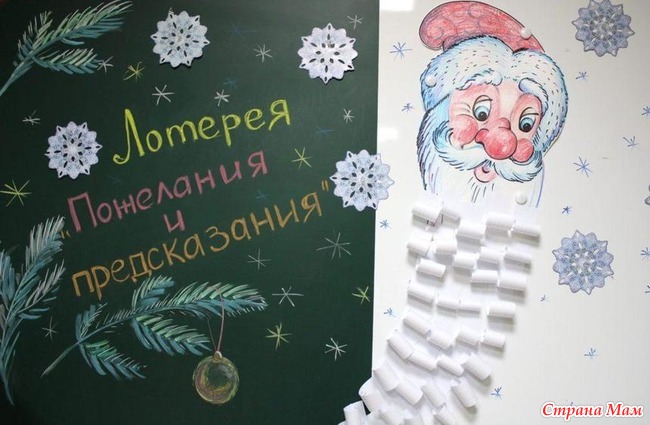 Лотерея
"Пожелания
и
предсказания"
Страна Мам